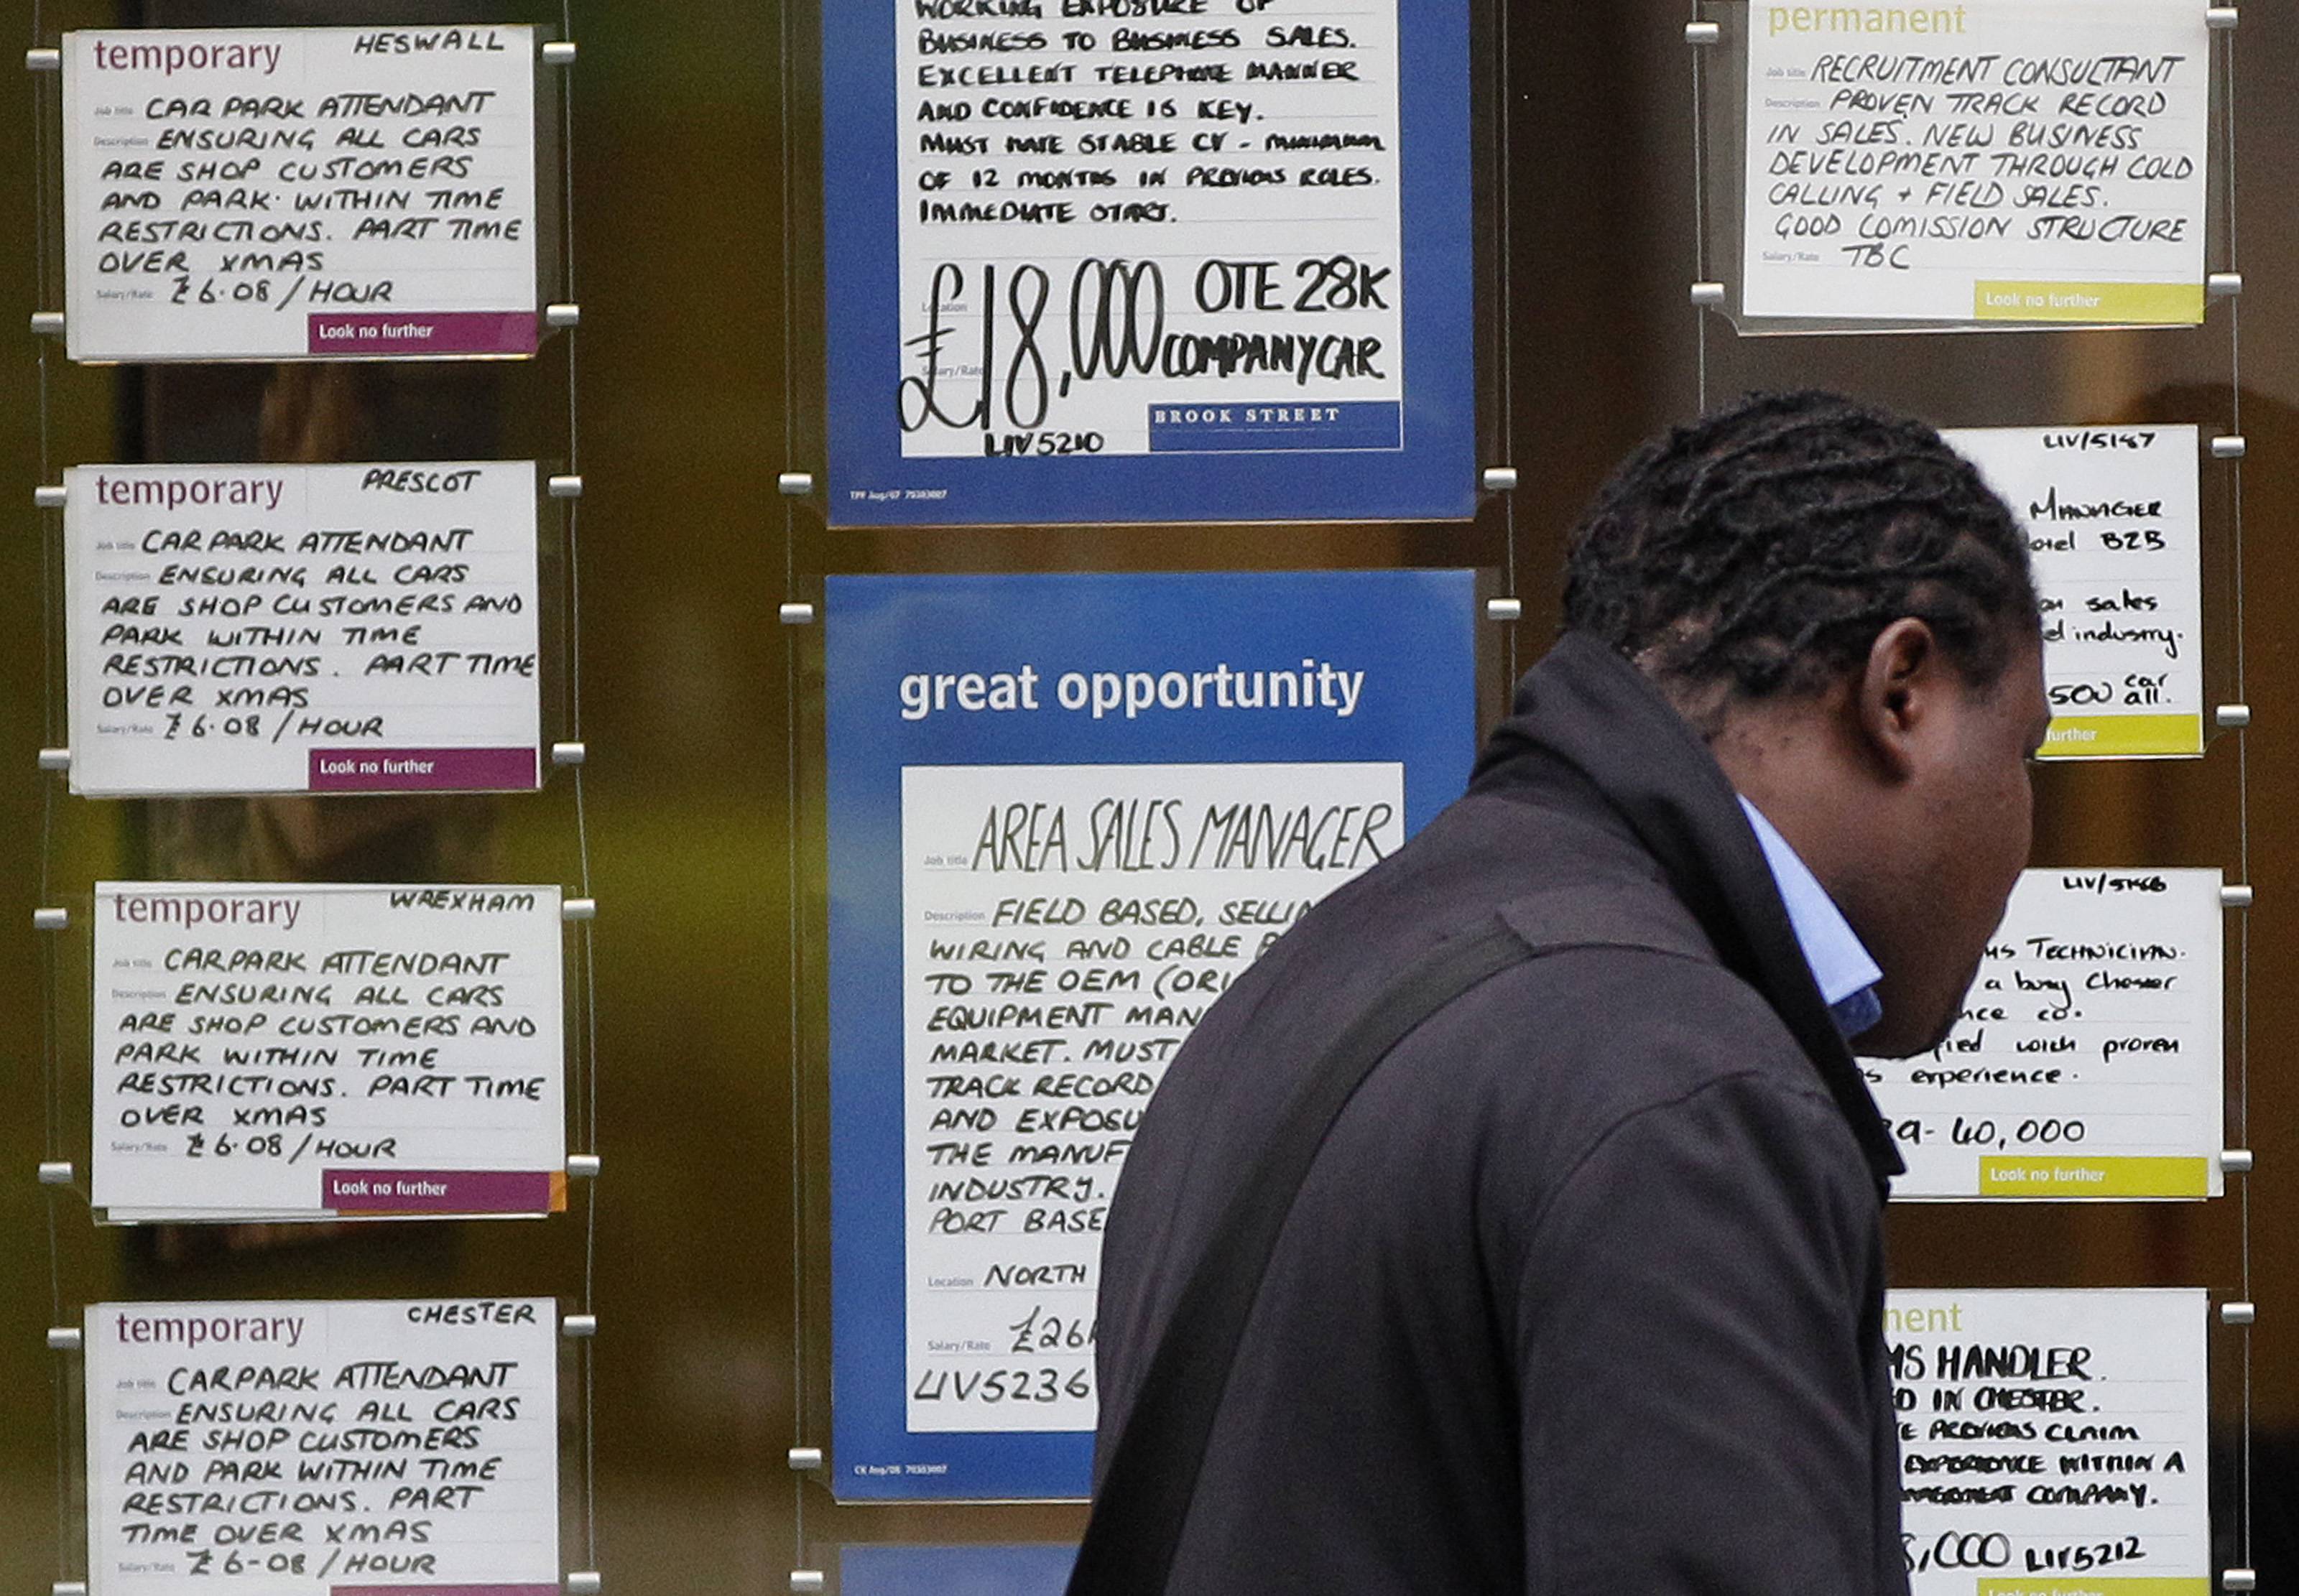 temporary HESWALL
Job title CAR PARK ATTENDANT
Description ENSURING ALL CARS
ARE SHOP CUSTOMERS
AND PARK WITHIN TIME
RESTRICTIONS. PART TIME
OVER XMAS
Salary/Rate £6.08/HOUR
Look no further
temporary PRESCOT
Job title CAR PARK ATTENDANT
Description ENSURING ALL CARS
ARE SHOP CUSTOMERS AND
PARK WITHIN TIME
RESTRICTIONS. PART TIME
OVER XMAS
Salary/Rate £6.08/HOUR
Look no further
temporary WREXHAM
Job title CARPARK ATTENDANT
Description ENSURING ALL CARS
ARE SHOP CUSTOMERS AND
PARK WITHIN TIME
RESTRICTIONS. PART TIME
OVER XMAS
Salary/Rate £6.08/HOUR
Look no further
temporary CHESTER
Job title CARPARK ATTENDANT
Description ENSURING ALL CARS
ARE SHOP CUSTOMERS
AND PARK WITHIN TIME
RESTRICTIONS. PART
TIME OVER XMAS
Salary/Rate £6-08/HOUR
WORKING EXPOSURE OF
BUSINESS TO BUSINESS SALES.
EXCELLENT TELEPHONE MANNER
AND CONFIDENCE IS KEY.
MUST HAVE STABLE CV - MINIMUM
OF 12 MONTHS IN PREVIOUS ROLES.
IMMEDIATE START.
Location
£18,000 OTE 28K
Salary/Rate COMPANY CAR
BROOK STREET
LIV5210
great opportunity
Job title AREA SALES MANAGER
Description FIELD BASED, SELLIN
WIRING AND CABLE
TO THE OEM (ORI
EQUIPMENT MAN
MARKET. MUST
TRACK RECORD
AND EXPOSU
THE MANUF
INDUSTRY.
PORT BASE
Location NORTH
Salary/Rate £26
LIV5236
permanent
Job title RECRUITMENT CONSULTANT
Description PROVEN TRACK RECORD
IN SALES. NEW BUSINESS
DEVELOPMENT THROUGH COLD
CALLING + FIELD SALES.
GOOD COMISSION STRUCTURE
Salary/Rate TBC
Look no further
LIV/5187
MANAGER
B2B
sales
industry.
500 car all.
further
TECHNICIAN.
a busy Chester
nce co.
fied with proven
experience.
40,000
Look no further
nent
MS HANDLER.
D IN CHESTER.
E PREVIOUS CLAIM
EXPERIENCE WITHIN A
COMPANY.
,000 LIV5212
Look no further